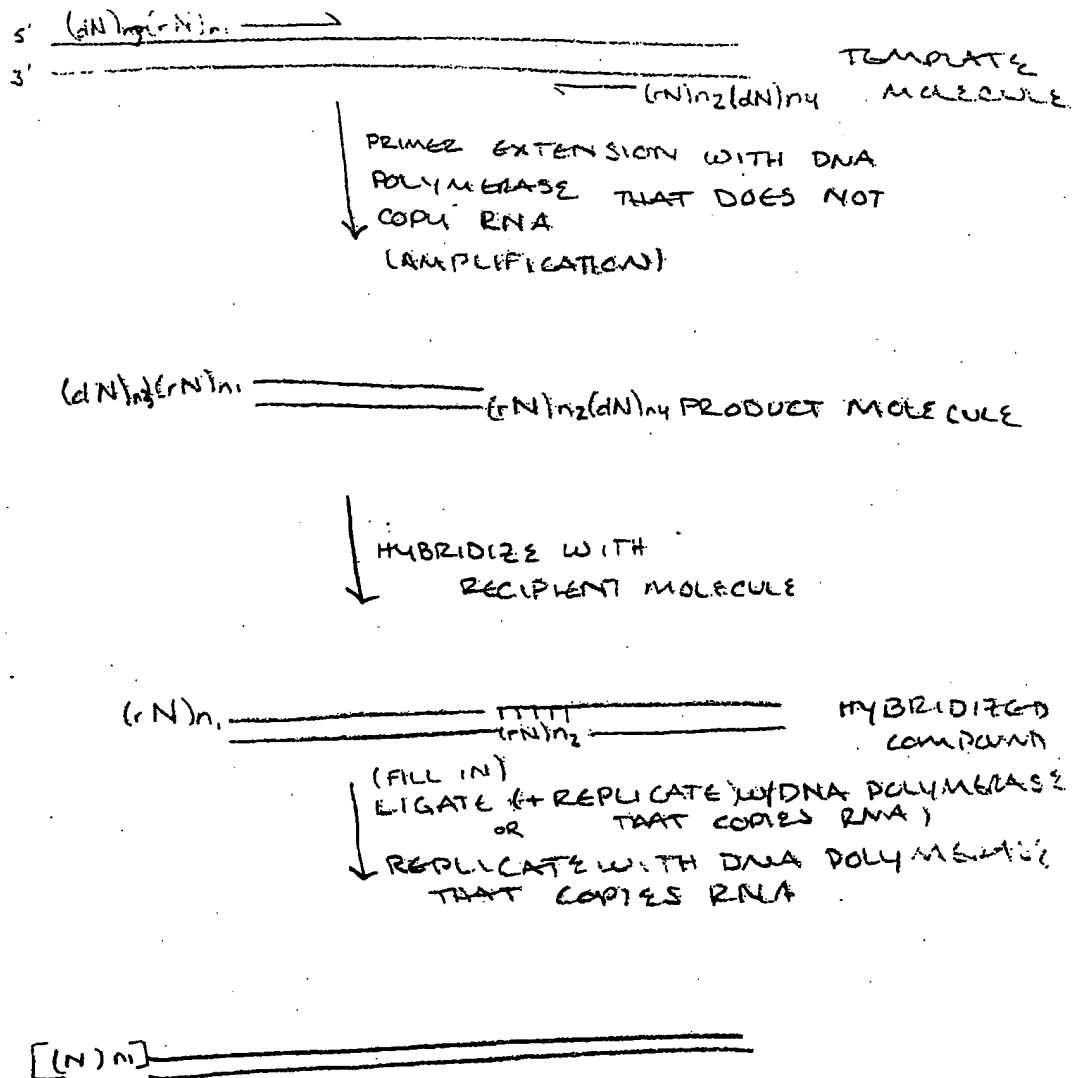 5' (dN)n3(rN)n1
3'
TEMPLATE
MOLECULE
(rN)n2(dN)n4
PRIMER EXTENSION WITH DNA
POLYMERASE THAT DOES NOT
COPY RNA
(AMPLIFICATION)
(dN)n3(rN)n1
(rN)n2(dN)n4 PRODUCT MOLECULE
HYBRIDIZE WITH
RECIPIENT MOLECULE
(rN)n1
(rN)n2
HYBRIDIZED
COMPOUND
(FILL IN)
LIGATE (+ REPLICATE W/DNA POLYMERASE
OR THAT COPIES RNA)
REPLICATE WITH DNA POLYMERASE
THAT COPIES RNA
[(N)n1]